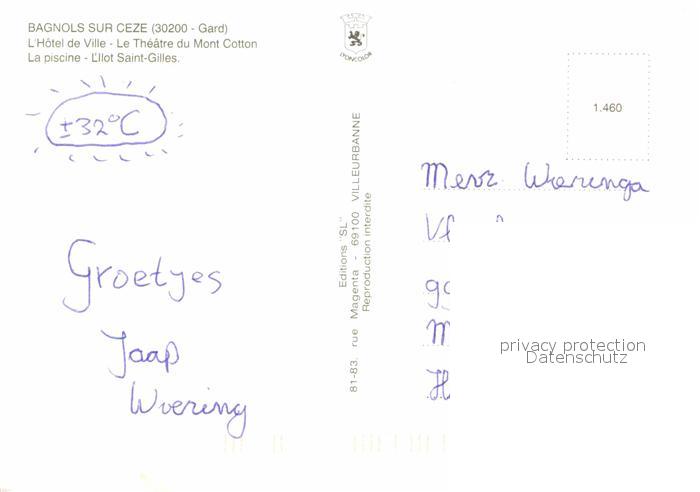 BAGNOLS SUR CEZE (30200 - Gard)
L'Hôtel de Ville - Le Théâtre du Mont Cotton
La piscine - L'Ilot Saint-Gilles.
LYONCOLOR
±32°C
Groetjes
Jaap
Wiering
Editions "SL"
81-83. rue Magenta - 69100 VILLEURBANNE
Reproduction interdite
1.460
Mevr Wieringa
privacy protection
Datenschutz